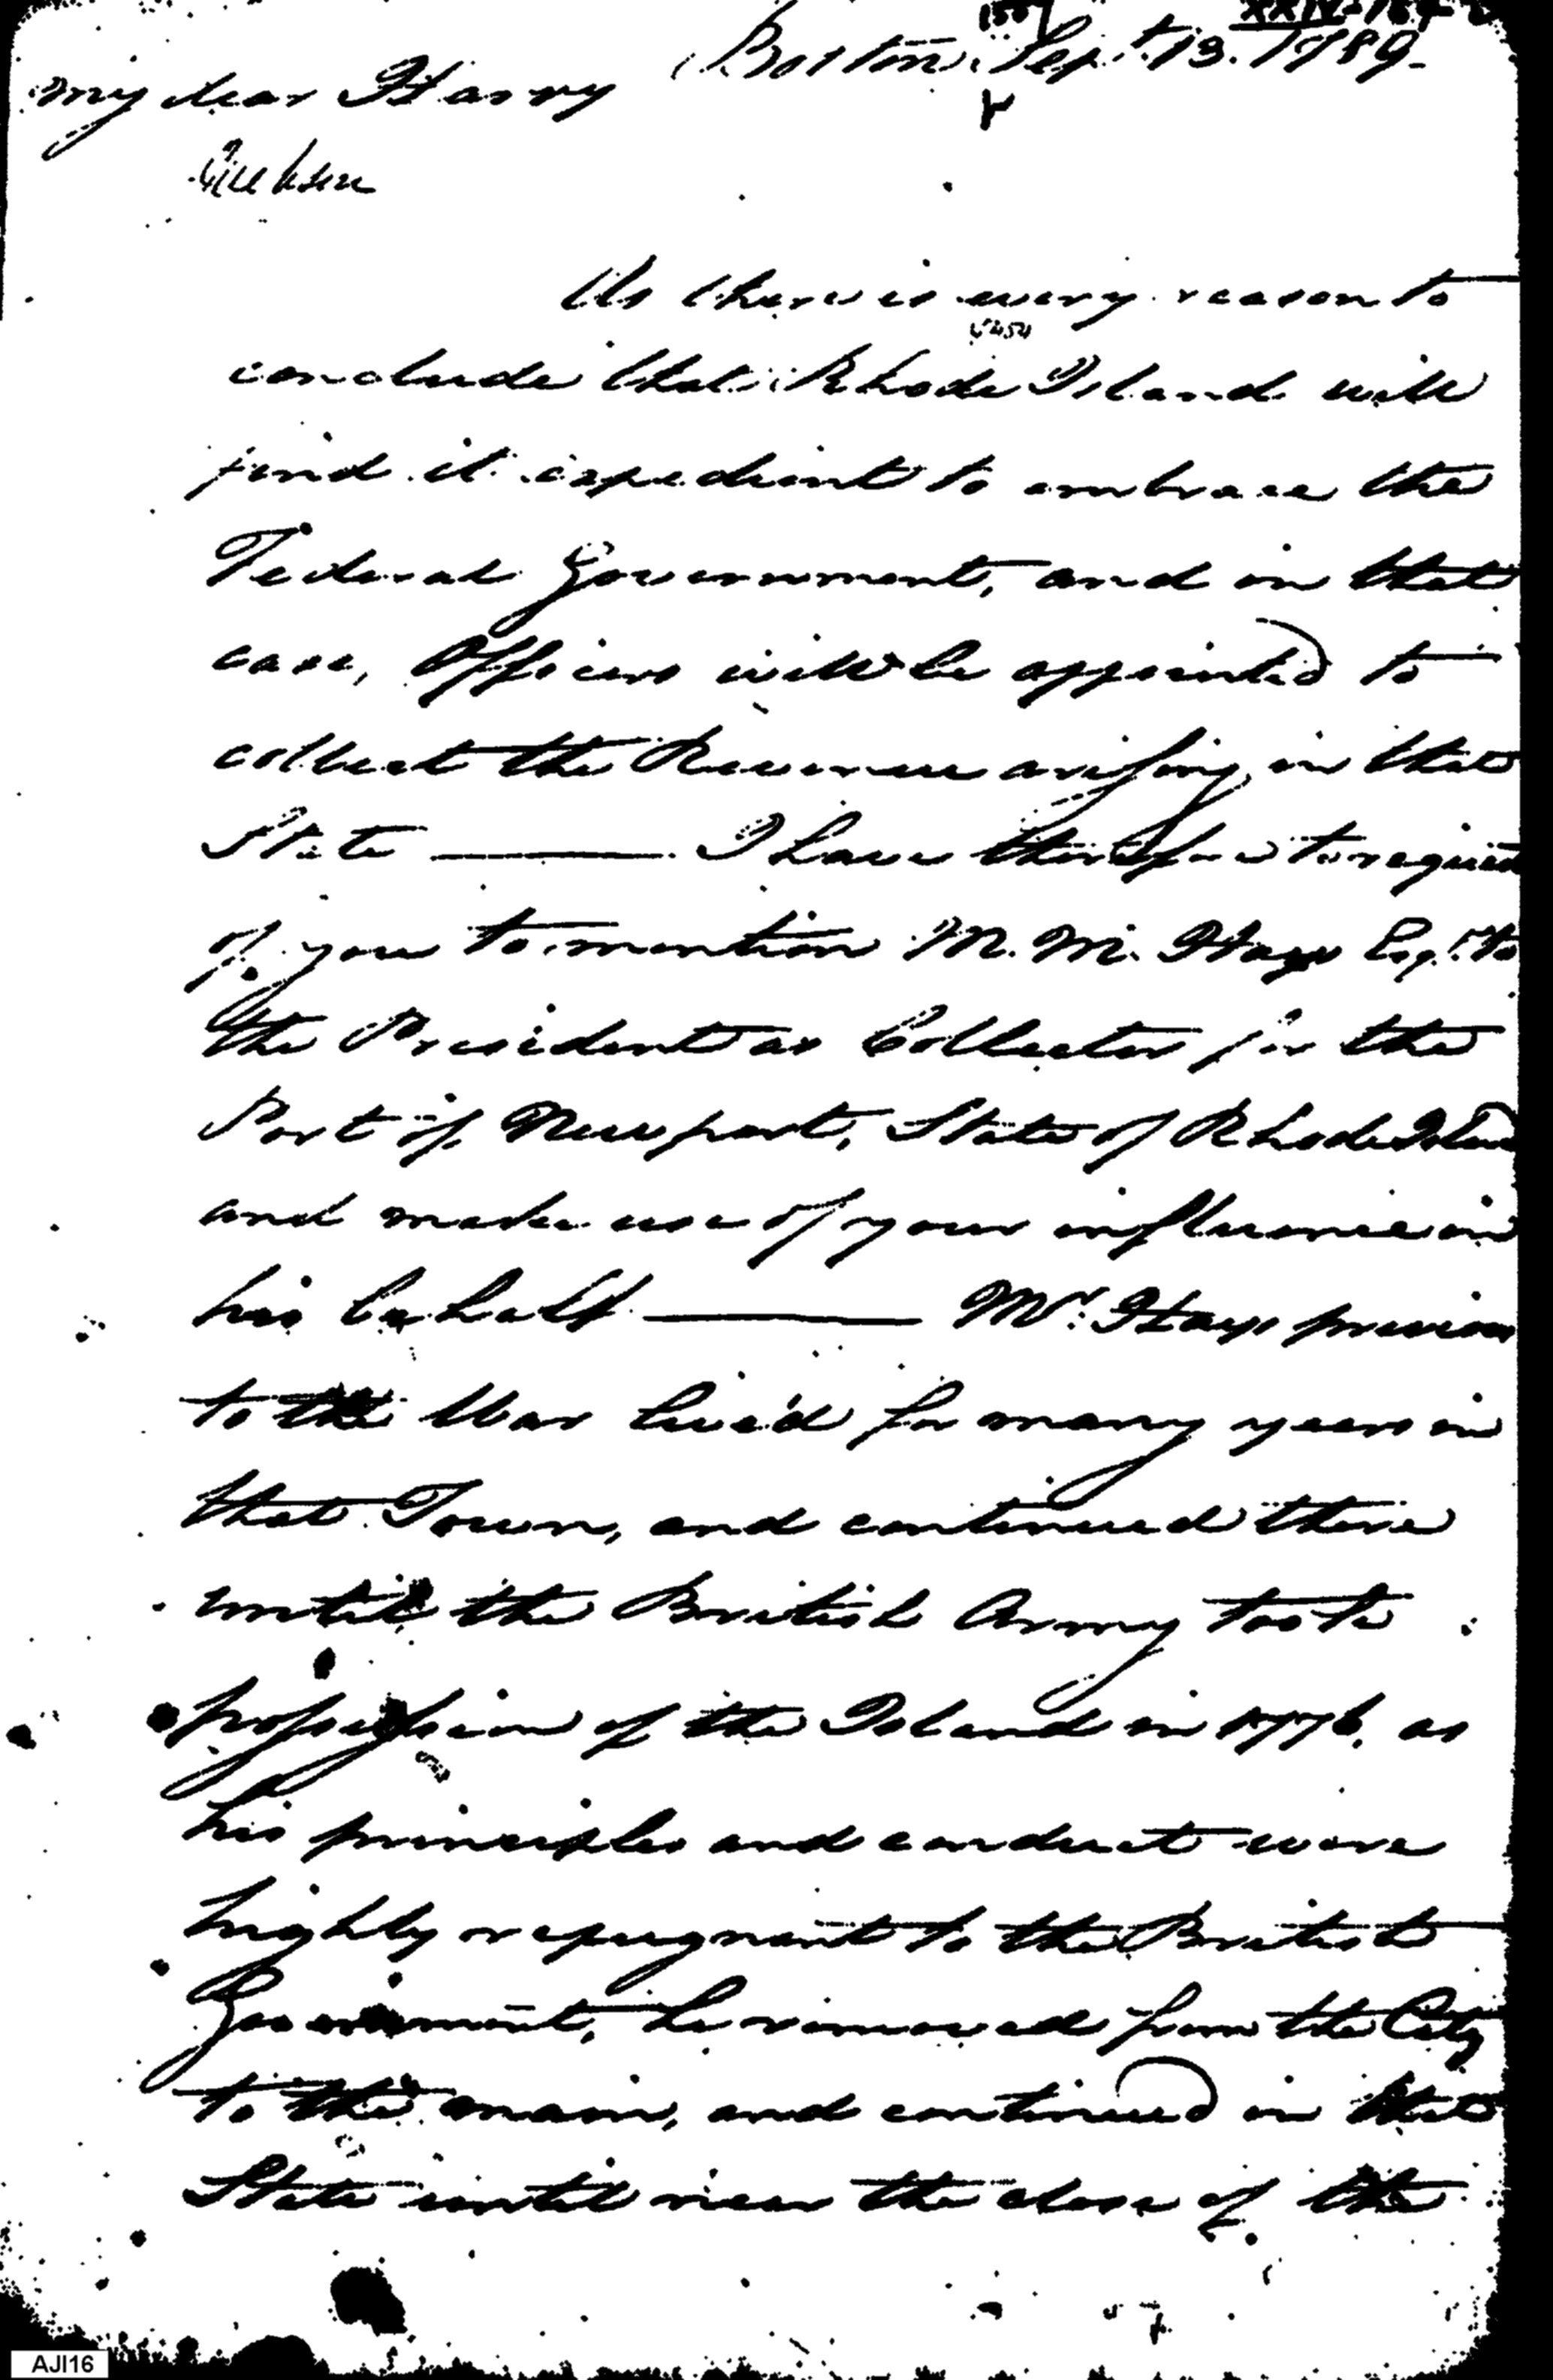 XXIV-164
Boston Sept. 13. 1789-
my dear Harry
Jackson
As there is every reason to
conclude that Rhode Island will
find it expedient to embrace the
Federal Government, and in that
case, Officers will be appointed to
collect the Revenue arising in that
State —— I have therefore to request
of you to mention M. M. Hays Esqr. to
the President as Collector for the
Port of Newport, State of Rhode Island
and make use of your influence in
his behalf —— Mr. Hays previous
to the War lived for many years in
that Town, and continued there
until the British Army took
possession of the Island in 1776. as
his principles and conduct were
highly repugnant to the British
Government, he removed from the City
to the main, and continued in that
State until near the close of the
AJI16